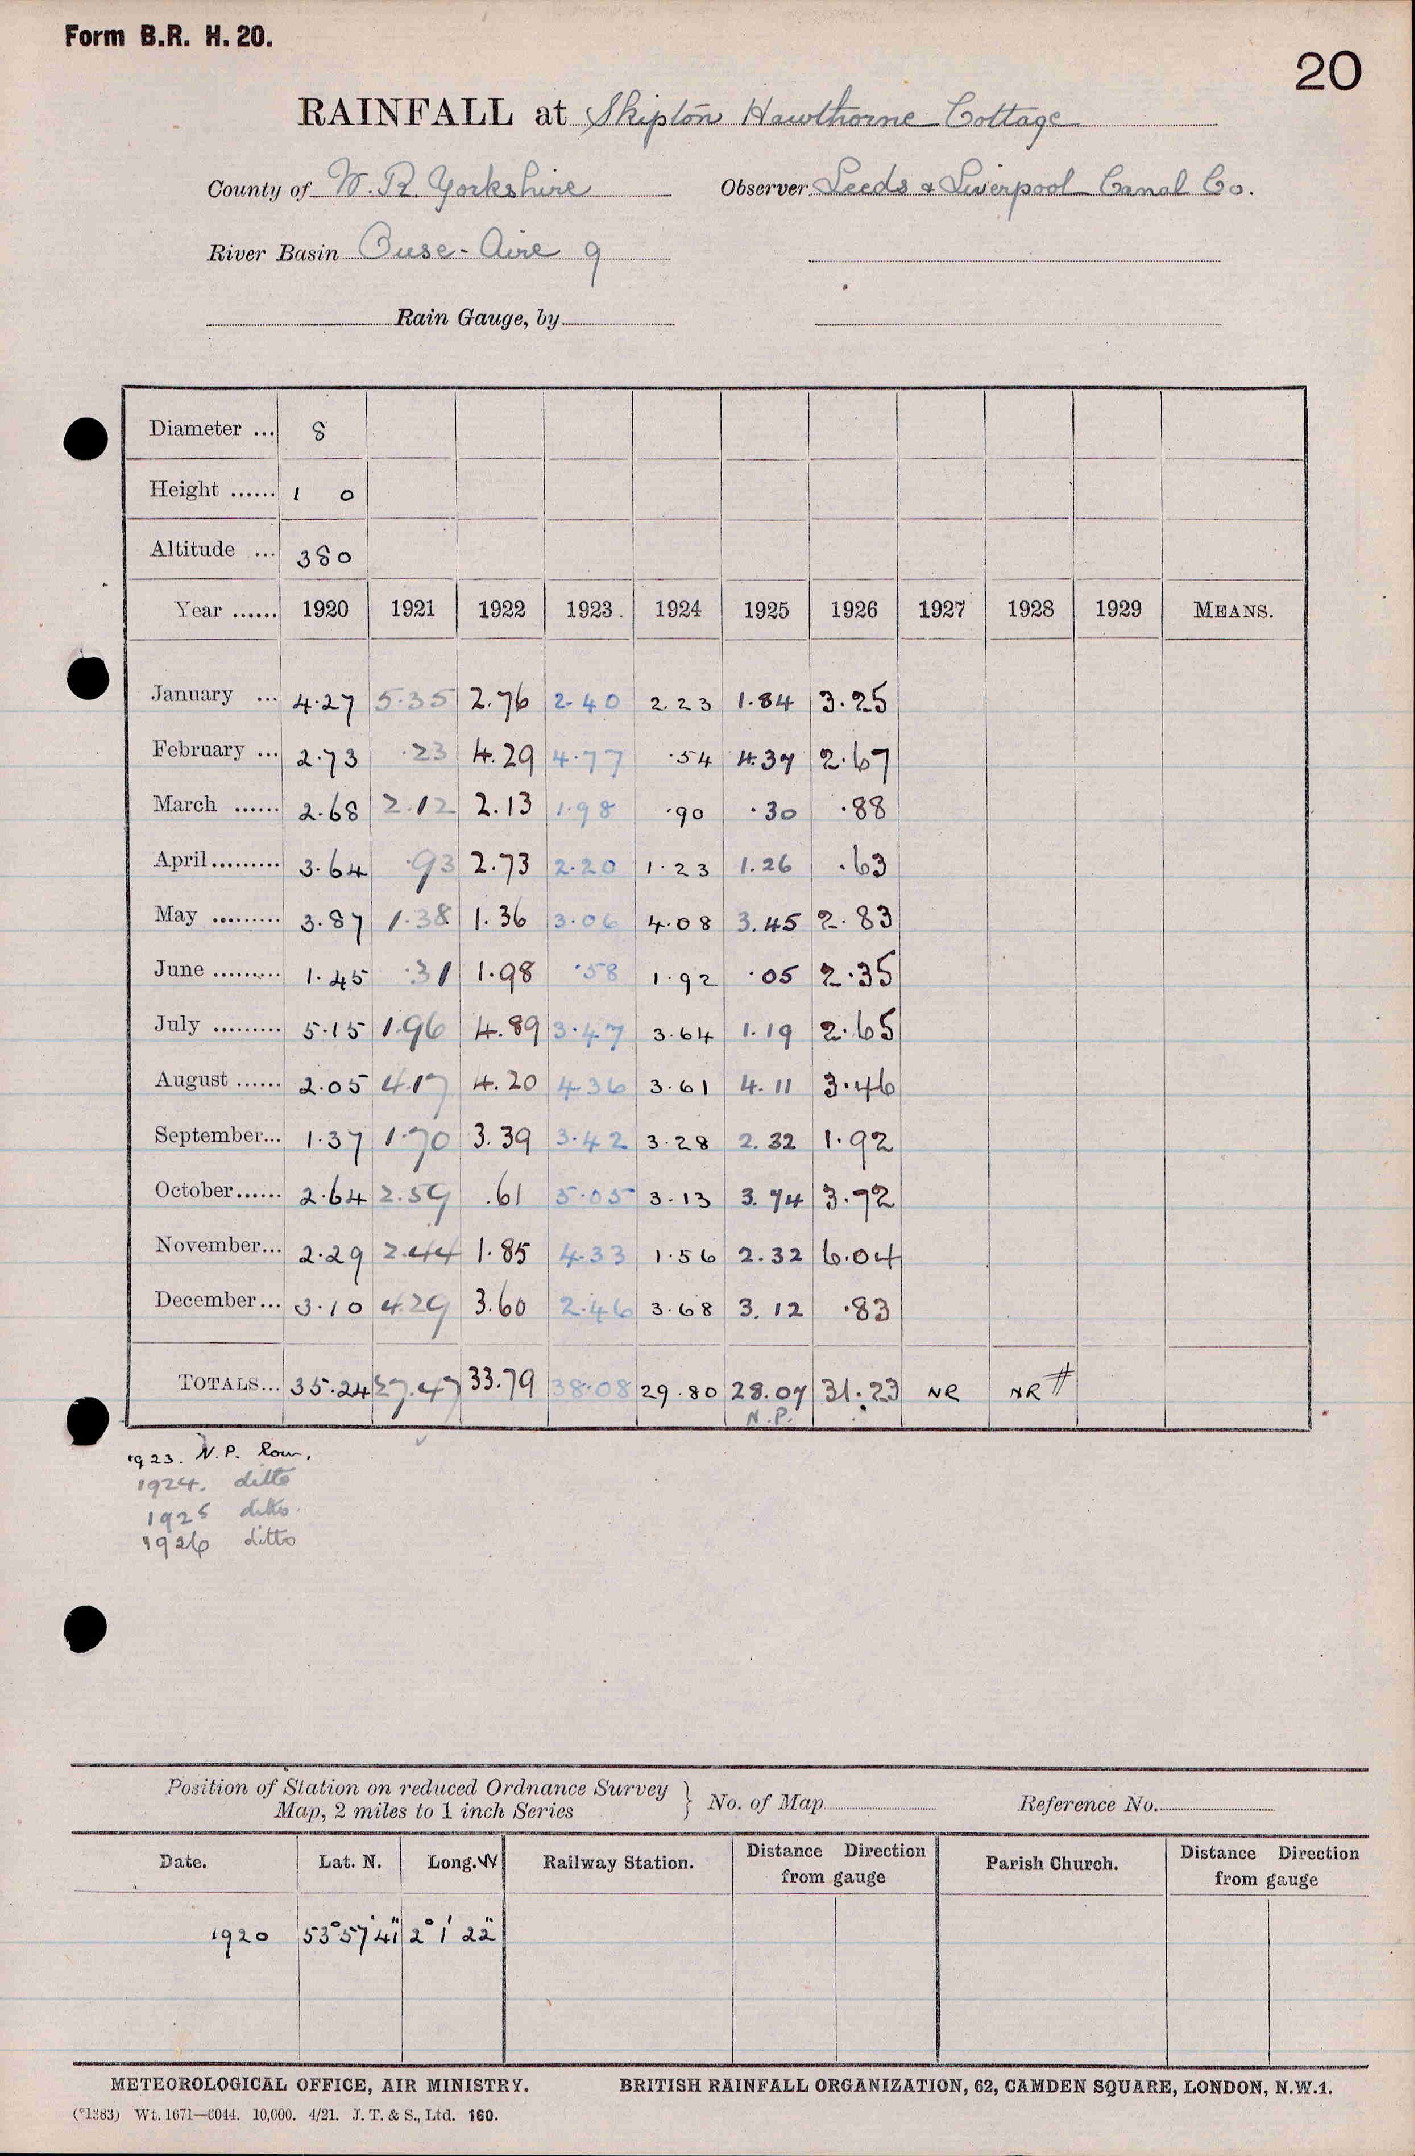 Form B.R. H. 20.
20
RAINFALL at Skipton Hawthorne Cottage
County of W. R. Yorkshire Observer Leeds & Liverpool Canal Co.
River Basin Ouse - Aire 9
Rain Gauge, by
Diameter ... 8
Height ...... 1 0
Altitude ... 380
Year ...... 1920 1921 1922 1923. 1924 1925 1926 1927 1928 1929 MEANS.
January ... 4.27 5.35 2.76 2.40 2.23 1.84 3.25
February ... 2.73 .23 4.29 4.77 .54 4.37 2.67
March ...... 2.68 2.12 2.13 1.98 .90 .30 .88
April ......... 3.64 .93 2.73 2.20 1.23 1.26 .63
May ......... 3.87 1.38 1.36 3.06 4.08 3.45 2.83
June ......... 1.45 .31 1.98 .58 1.92 .05 2.35
July ......... 5.15 1.96 4.89 3.47 3.64 1.19 2.65
August ...... 2.05 4.17 4.20 4.36 3.61 4.11 3.46
September... 1.37 1.70 3.39 3.42 3.28 2.32 1.92
October...... 2.64 2.59 .61 5.05 3.13 3.74 3.72
November... 2.29 2.44 1.85 4.33 1.56 2.32 6.04
December... 3.10 4.29 3.60 2.46 3.68 3.12 .83
TOTALS... 35.24 27.47 33.79 38.08 29.80 28.07 31.23 NR NR #
N.P.
1923. N.P. low.
1924. ditto
1925 ditto.
1926 ditto
Position of Station on reduced Ordnance Survey
Map, 2 miles to 1 inch Series } No. of Map Reference No.
Date. Lat. N. Long. W Railway Station. Distance Direction from gauge Parish Church. Distance Direction from gauge
1920 53° 57' 41" 2° 1' 22"
METEOROLOGICAL OFFICE, AIR MINISTRY. BRITISH RAINFALL ORGANIZATION, 62, CAMDEN SQUARE, LONDON, N.W.1.
(*1383) Wt. 1671—6044. 10,000. 4/21. J. T. & S., Ltd. 160.